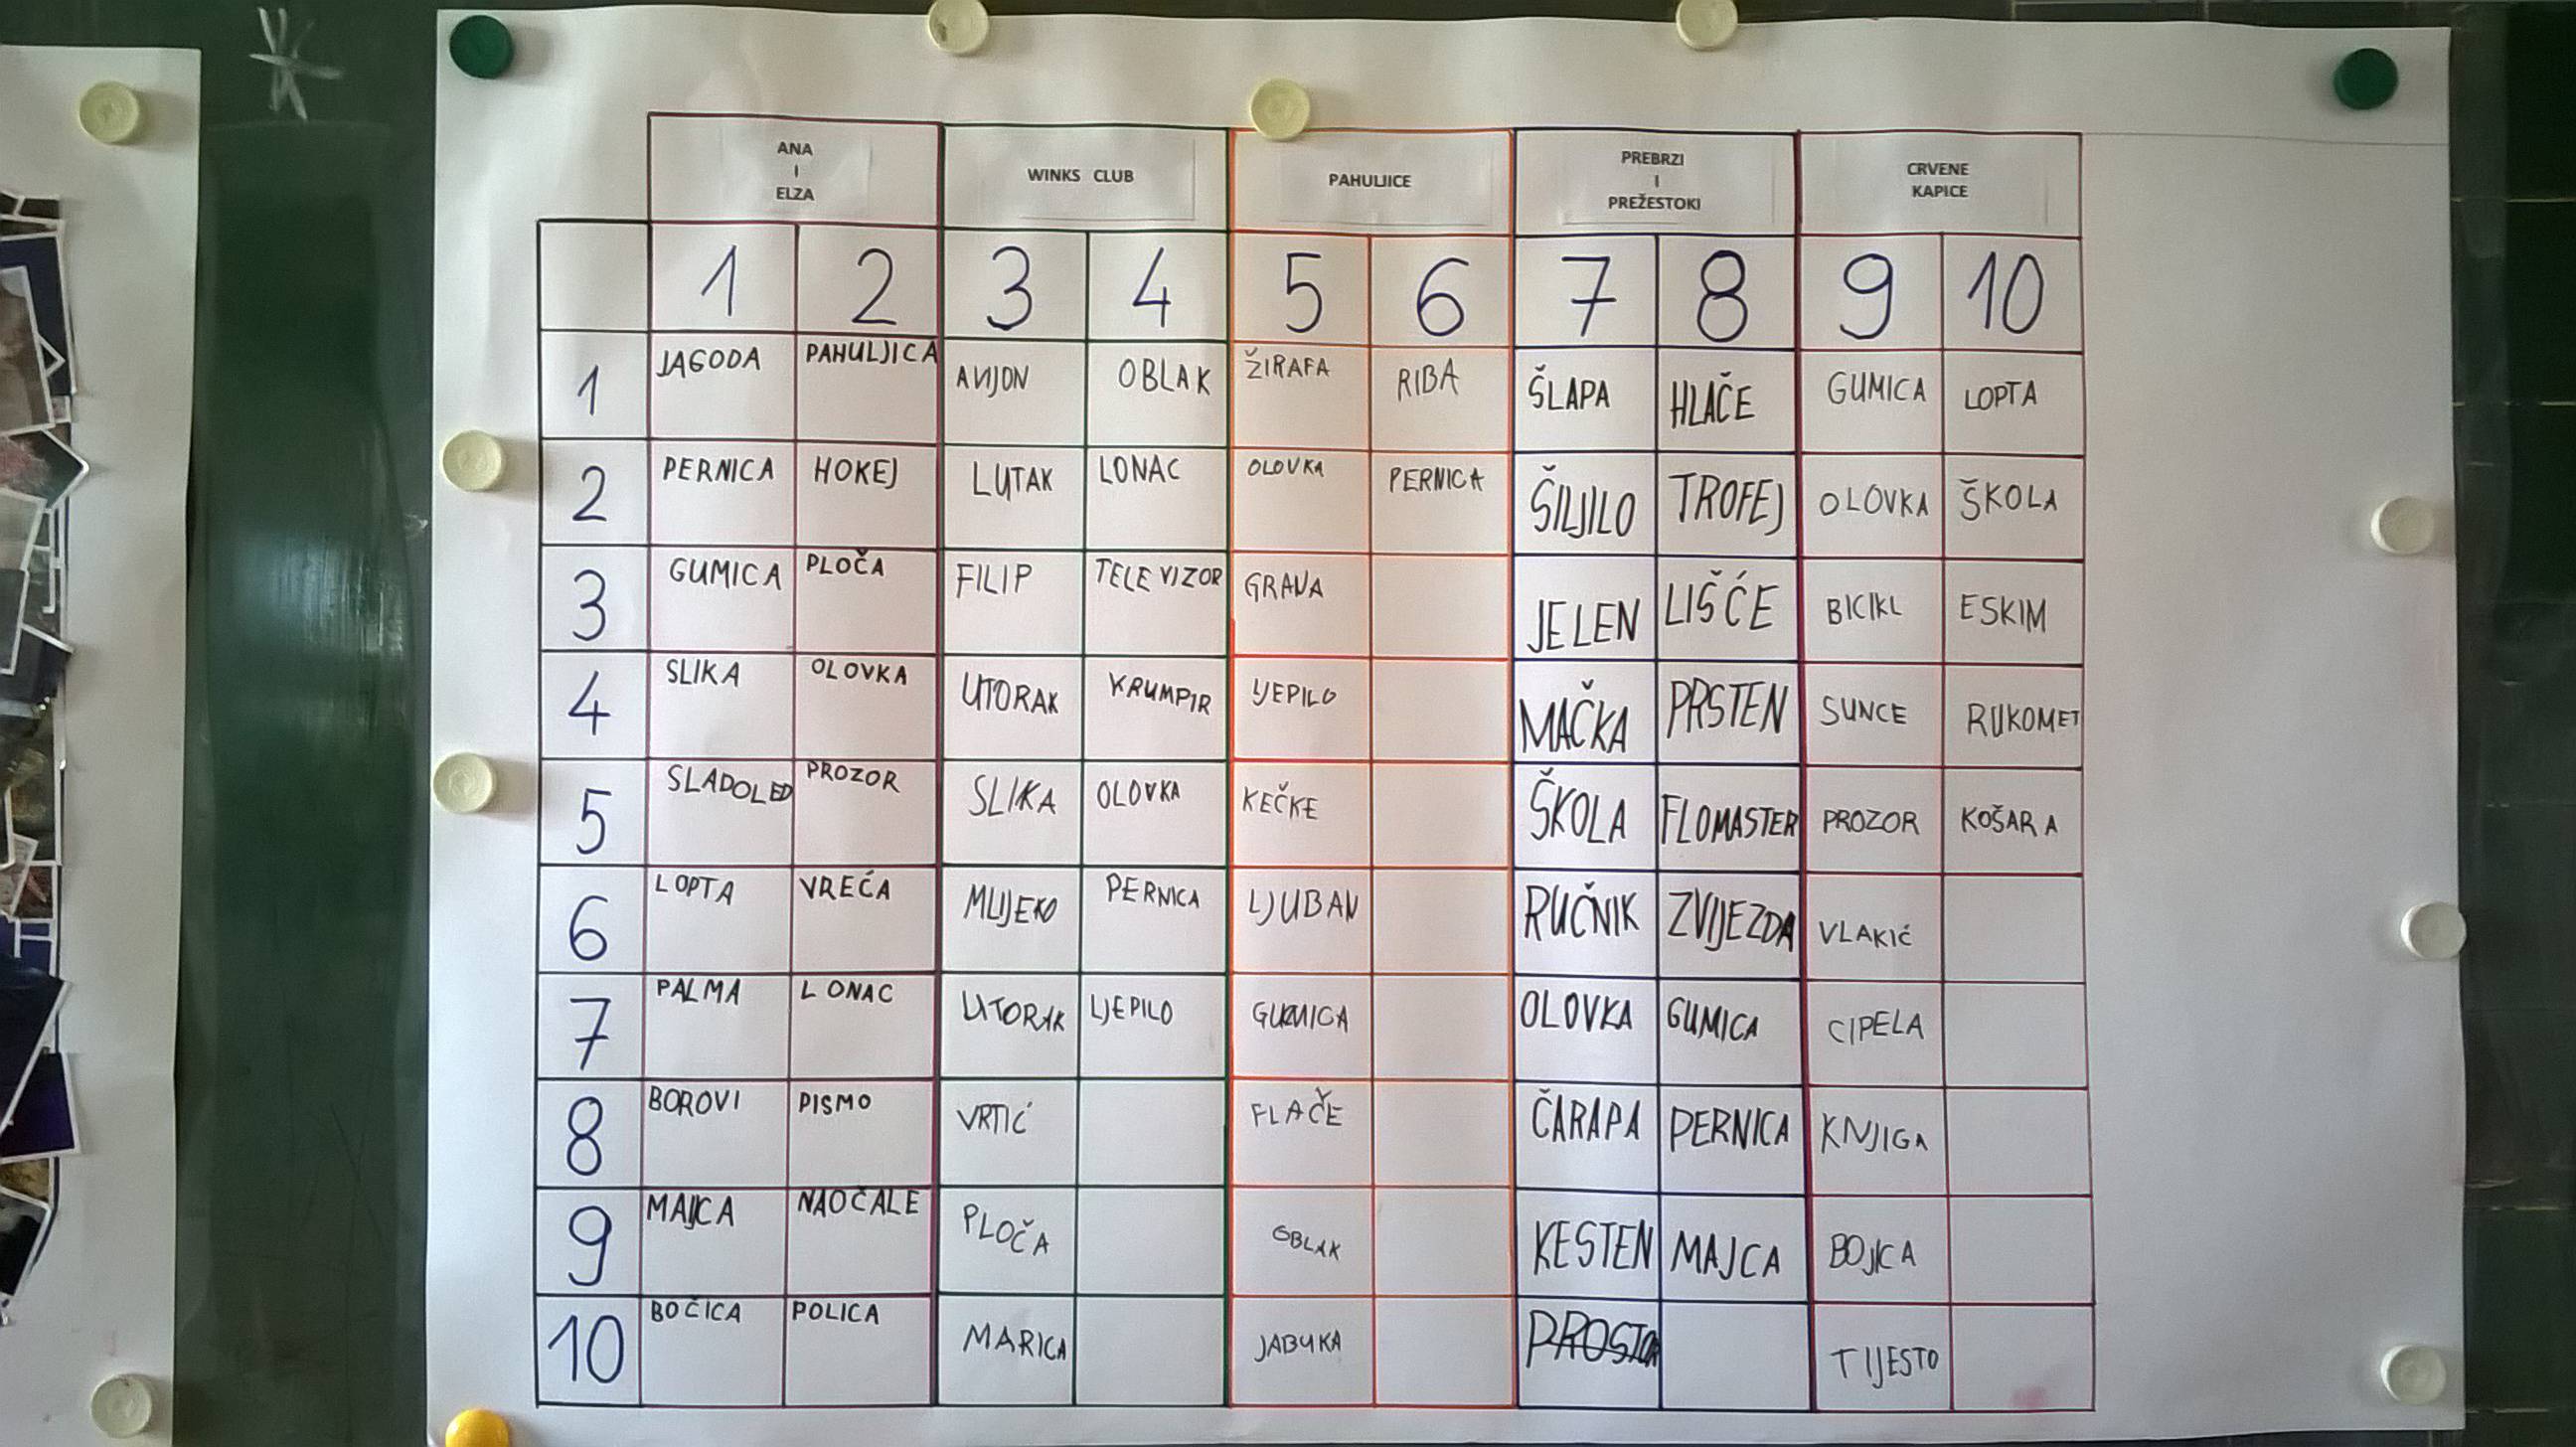 ANA
I
ELZA
WINKS CLUB
PAHULJICE
PREBRZI
I
PREŽESTOKI
CRVENE
KAPICE
1 2 3 4 5 6 7 8 9 10
1 JAGODA PAHULJICA AVIJON OBLAK ŽIRAFA RIBA ŠLAPA HLAČE GUMICA LOPTA
2 PERNICA HOKEJ LUTAK LONAC OLOVKA PERNICA ŠILJILO TROFEJ OLOVKA ŠKOLA
3 GUMICA PLOČA FILIP TELEVIZOR GRANA JELEN LIŠĆE BICIKL ESKIM
4 SLIKA OLOVKA UTORAK KRUMPIR LJEPILO MAČKA PRSTEN SUNCE RUKOMET
5 SLADOLED PROZOR SLIKA OLOVKA KEČKE ŠKOLA FLOMASTER PROZOR KOŠARA
6 LOPTA VREĆA MLIJEKO PERNICA LJUBAV RUČNIK ZVIJEZDA VLAKIĆ
7 PALMA LONAC UTORAK LJEPILO GUMICA OLOVKA GUMICA CIPELA
8 BOROVI PISMO VRTIĆ FLAČE ČARAPA PERNICA KNJIGA
9 MAJCA NAOČALE PLOČA OBLAK KESTEN MAJCA BOJICA
10 BOČICA POLICA MARICA JABUKA PROSTOR TIJESTO